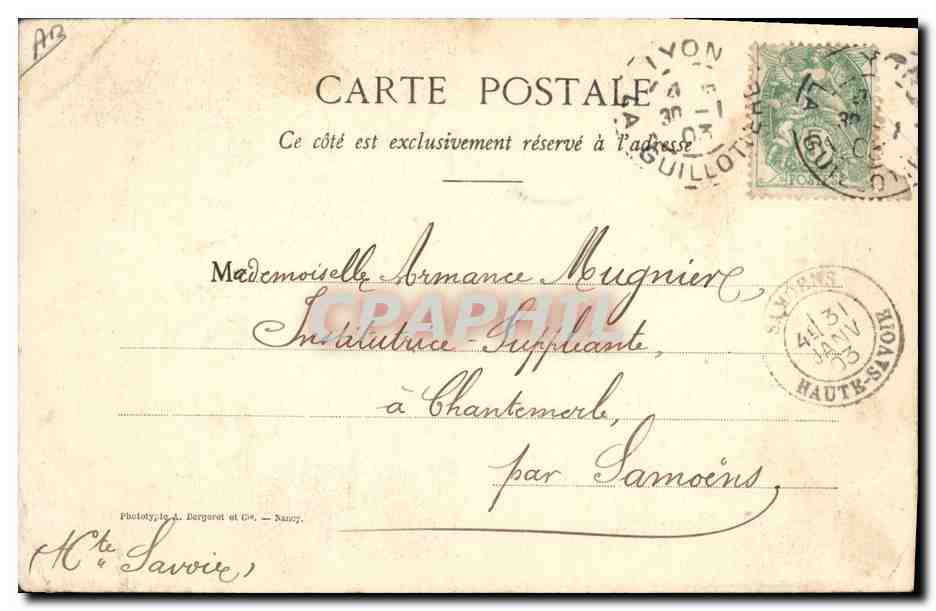 AB
CARTE POSTALE
Ce côté est exclusivement réservé à l'adresse
LYON
LA GUILLOTIERE
POSTES
Mademoiselle Armance Mugnier,
Institutrice-Suppléante,
à Chantemerle,
par Samoëns,
(Hte Savoie)
SAMOENS
4E 31
JANV
03
HAUTE-SAVOIE
Phototypie A. Bergeret et Cie. — Nancy.
CPAPHIL